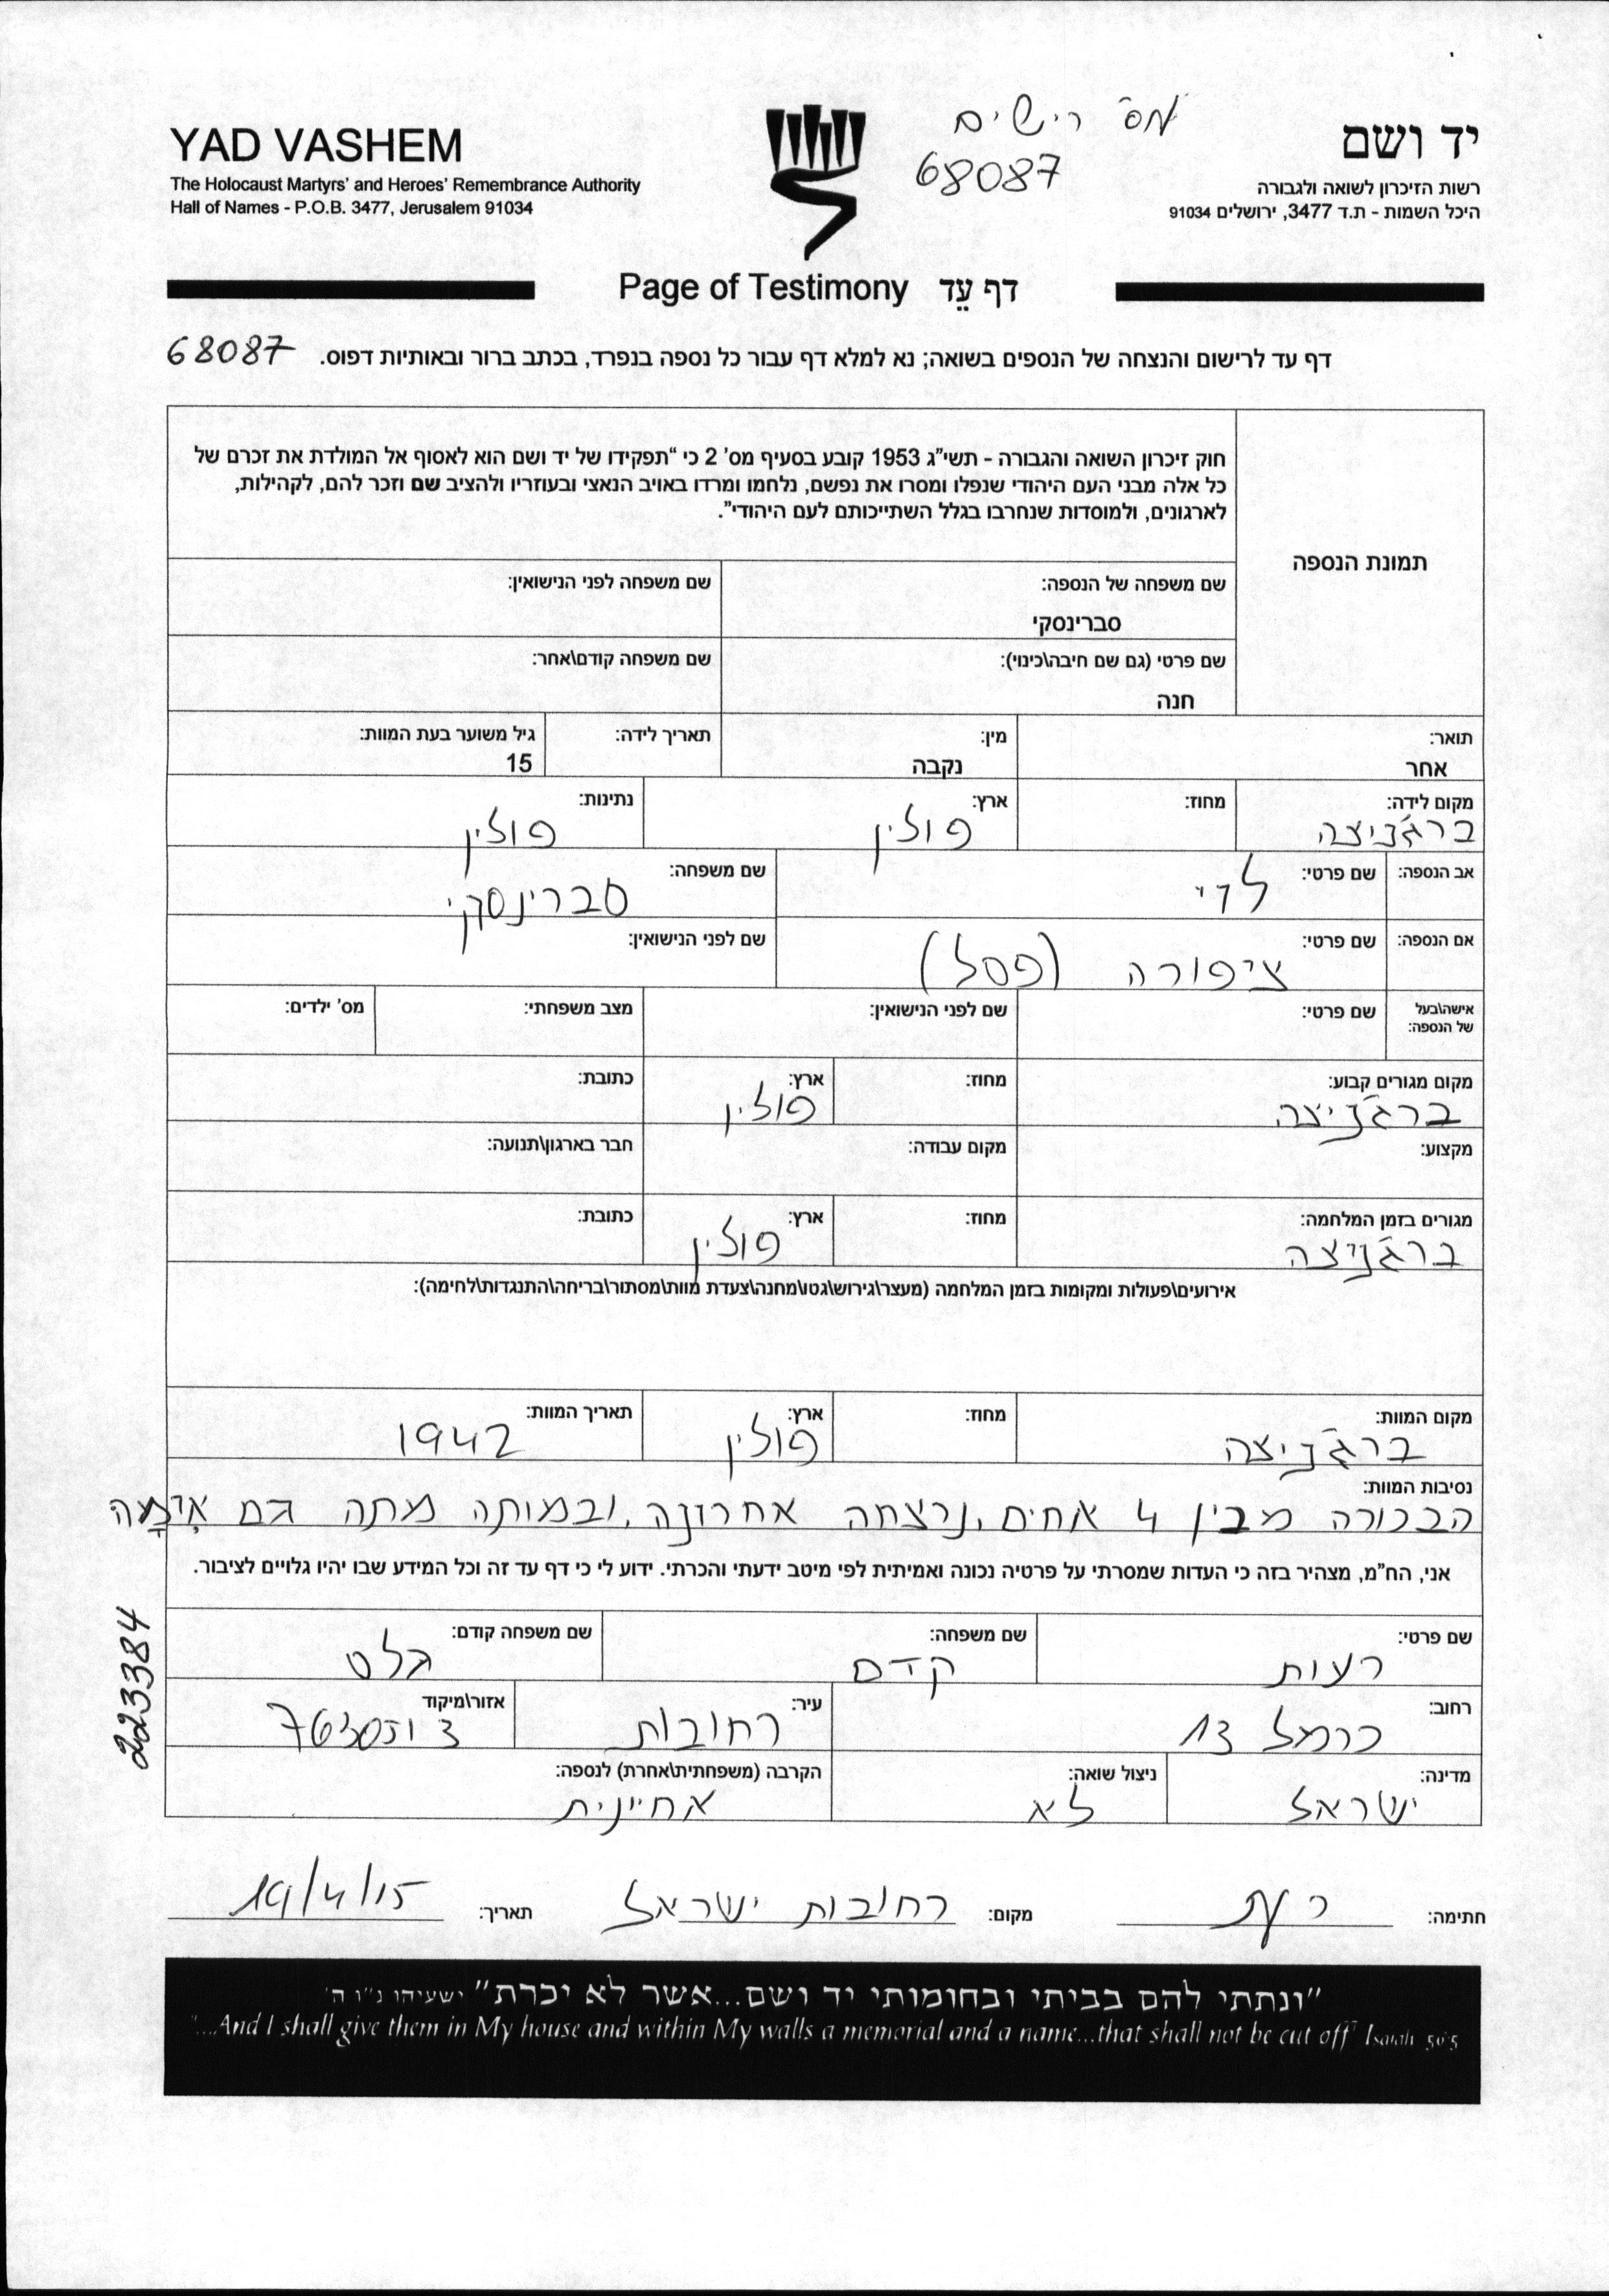 מס' רישים
68087
YAD VASHEM
The Holocaust Martyrs' and Heroes' Remembrance Authority
Hall of Names - P.O.B. 3477, Jerusalem 91034
יד ושם
רשות הזיכרון לשואה ולגבורה
היכל השמות - ת.ד 3477, ירושלים 91034
Page of Testimony דף עֵד
דף עד לרישום והנצחה של הנספים בשואה; נא למלא דף עבור כל נספה בנפרד, בכתב ברור ובאותיות דפוס. 68087
תמונת הנספה
חוק זיכרון השואה והגבורה - תשי"ג 1953 קובע בסעיף מס' 2 כי "תפקידו של יד ושם הוא לאסוף אל המולדת את זכרם של
כל אלה מבני העם היהודי שנפלו ומסרו את נפשם, נלחמו ומרדו באויב הנאצי ובעוזריו ולהציב שם וזכר להם, לקהילות,
לארגונים, ולמוסדות שנחרבו בגלל השתייכותם לעם היהודי".
שם משפחה של הנספה: שם משפחה לפני הנישואין:
סברינסקי
שם פרטי (גם שם חיבה\כינוי): שם משפחה קודם\אחר:
חנה
תואר: מין: תאריך לידה: גיל משוער בעת המוות:
אחר נקבה 15
מקום לידה: מחוז: ארץ: נתינות:
ברגניצה פולין פולין
אב הנספה: שם פרטי: לדי שם משפחה: סברינסקי
אם הנספה: שם פרטי: ציפורה (פסל) שם לפני הנישואין:
אישה\בעל שם פרטי: שם לפני הנישואין: מצב משפחתי: מס' ילדים:
של הנספה:
מקום מגורים קבוע: מחוז: ארץ: כתובת:
ברגניצה פולין
מקצוע: מקום עבודה: חבר בארגון\תנועה:
מגורים בזמן המלחמה: מחוז: ארץ: כתובת:
ברגניצה פולין
אירועים\פעולות ומקומות בזמן המלחמה (מעצר\גירוש\גטו\מחנה\צעדת מוות\מסתור\בריחה\התנגדות\לחימה):
מקום המוות: מחוז: ארץ: תאריך המוות:
ברגניצה פולין 1942
נסיבות המוות:
הבכורה מבין 4 אחים, נרצחה אחרונה, ובמותה מתה גם אִימָהּ
אני, הח"מ, מצהיר בזה כי העדות שמסרתי על פרטיה נכונה ואמיתית לפי מיטב ידעתי והכרתי. ידוע לי כי דף עד זה וכל המידע שבו יהיו גלויים לציבור.
223384
שם פרטי: שם משפחה: שם משפחה קודם:
רעות קדם גלט
רחוב: עיר: אזור\מיקוד
כרמל 13 רחובות
מדינה: ניצול שואה: הקרבה (משפחתית\אחרת) לנספה:
ישראל לא אחיינית
חתימה: מקום: רחובות ישראל תאריך: 14/4/15
"ונתתי להם בביתי ובחומותי יד ושם...אשר לא יכרת" ישעיהו נ"ו ה'
"...And I shall give them in My house and within My walls a memorial and a name...that shall not be cut off" Isaiah 56:5